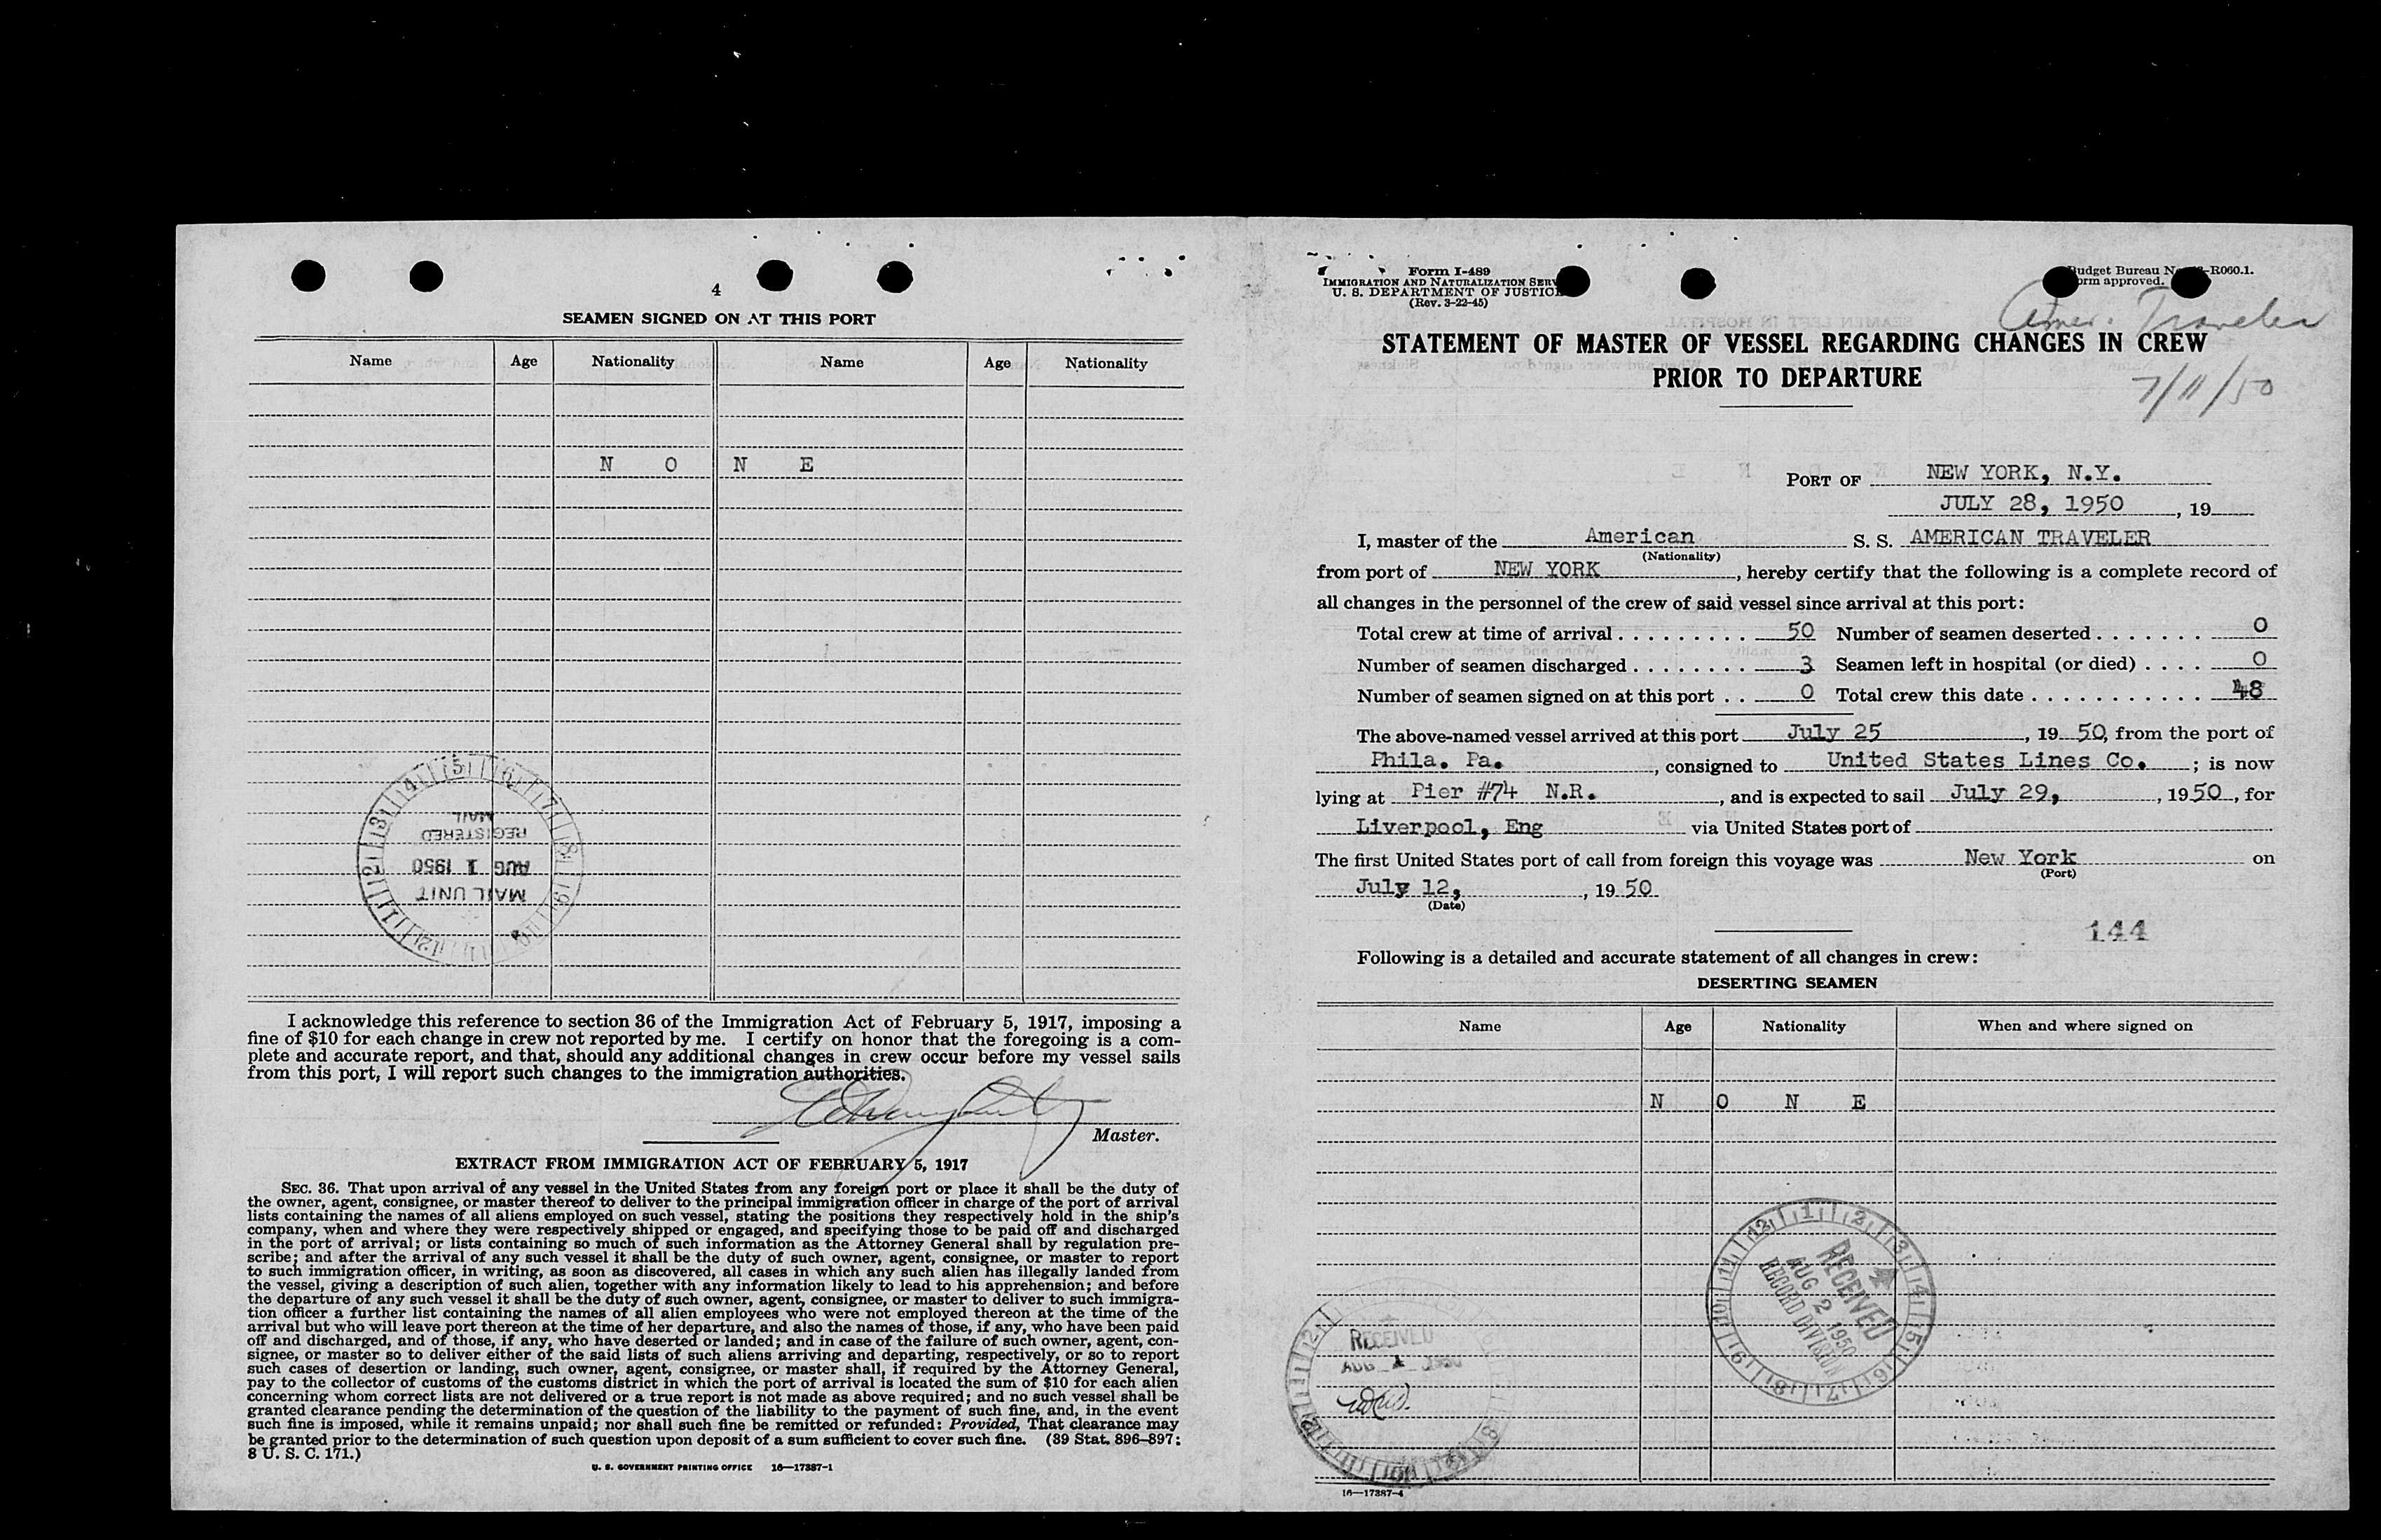 4
SEAMEN SIGNED ON AT THIS PORT
Name Age Nationality Name Age Nationality
N O N E
MAIL UNIT
AUG 1 1950
REGISTERED
MAIL
I acknowledge this reference to section 36 of the Immigration Act of February 5, 1917, imposing a
fine of $10 for each change in crew not reported by me. I certify on honor that the foregoing is a com-
plete and accurate report, and that, should any additional changes in crew occur before my vessel sails
from this port, I will report such changes to the immigration authorities.
Master.
EXTRACT FROM IMMIGRATION ACT OF FEBRUARY 5, 1917
SEC. 36. That upon arrival of any vessel in the United States from any foreign port or place it shall be the duty of
the owner, agent, consignee, or master thereof to deliver to the principal immigration officer in charge of the port of arrival
lists containing the names of all aliens employed on such vessel, stating the positions they respectively hold in the ship's
company, when and where they were respectively shipped or engaged, and specifying those to be paid off and discharged
in the port of arrival; or lists containing so much of such information as the Attorney General shall by regulation pre-
scribe; and after the arrival of any such vessel it shall be the duty of such owner, agent, consignee, or master to report
to such immigration officer, in writing, as soon as discovered, all cases in which any such alien has illegally landed from
the vessel, giving a description of such alien, together with any information likely to lead to his apprehension; and before
the departure of any such vessel it shall be the duty of such owner, agent, consignee, or master to deliver to such immigra-
tion officer a further list containing the names of all alien employees who were not employed thereon at the time of the
arrival but who will leave port thereon at the time of her departure, and also the names of those, if any, who have been paid
off and discharged, and of those, if any, who have deserted or landed; and in case of the failure of such owner, agent, con-
signee, or master so to deliver either of the said lists of such aliens arriving and departing, respectively, or so to report
such cases of desertion or landing, such owner, agent, consignee, or master shall, if required by the Attorney General,
pay to the collector of customs of the customs district in which the port of arrival is located the sum of $10 for each alien
concerning whom correct lists are not delivered or a true report is not made as above required; and no such vessel shall be
granted clearance pending the determination of the question of the liability to the payment of such fine, and, in the event
such fine is imposed, while it remains unpaid; nor shall such fine be remitted or refunded: Provided, That clearance may
be granted prior to the determination of such question upon deposit of a sum sufficient to cover such fine. (39 Stat. 896-897;
8 U. S. C. 171.)
U. S. GOVERNMENT PRINTING OFFICE 16—17387-1
Form I-489
IMMIGRATION AND NATURALIZATION SERV
U. S. DEPARTMENT OF JUSTICE
(Rev. 3-22-45)
Budget Bureau -R060.1.
orm approved.
Amer. Traveler
STATEMENT OF MASTER OF VESSEL REGARDING CHANGES IN CREW
PRIOR TO DEPARTURE
7/11/50
PORT OF NEW YORK, N.Y.
JULY 28, 1950, 19
I, master of the American S. S. AMERICAN TRAVELER
(Nationality)
from port of NEW YORK, hereby certify that the following is a complete record of
all changes in the personnel of the crew of said vessel since arrival at this port:
Total crew at time of arrival 50 Number of seamen deserted 0
Number of seamen discharged 3 Seamen left in hospital (or died) 0
Number of seamen signed on at this port 0 Total crew this date 48
The above-named vessel arrived at this port July 25, 19 50, from the port of
Phila. Pa., consigned to United States Lines Co.; is now
lying at Pier #74 N.R., and is expected to sail July 29, , 1950, for
Liverpool, Eng via United States port of
The first United States port of call from foreign this voyage was New York on
(Port)
July 12, , 19 50
(Date)
144
Following is a detailed and accurate statement of all changes in crew:
DESERTING SEAMEN
Name Age Nationality When and where signed on
N O N E
RECEIVED
AUG 2 1950
RECORD DIVISION
RECEIVED
AUG 1 1950
16—17387-4